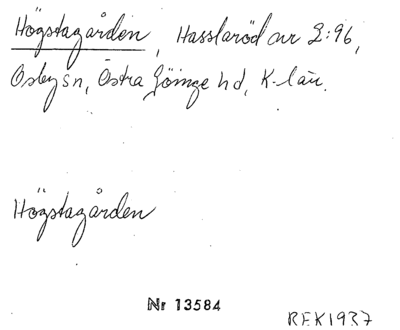 Högstagården, Hasslaröd nr 2:96,
Osby sn, Östra Göinge hd, K-län.
Högstagården
Nr 13584
REK1937